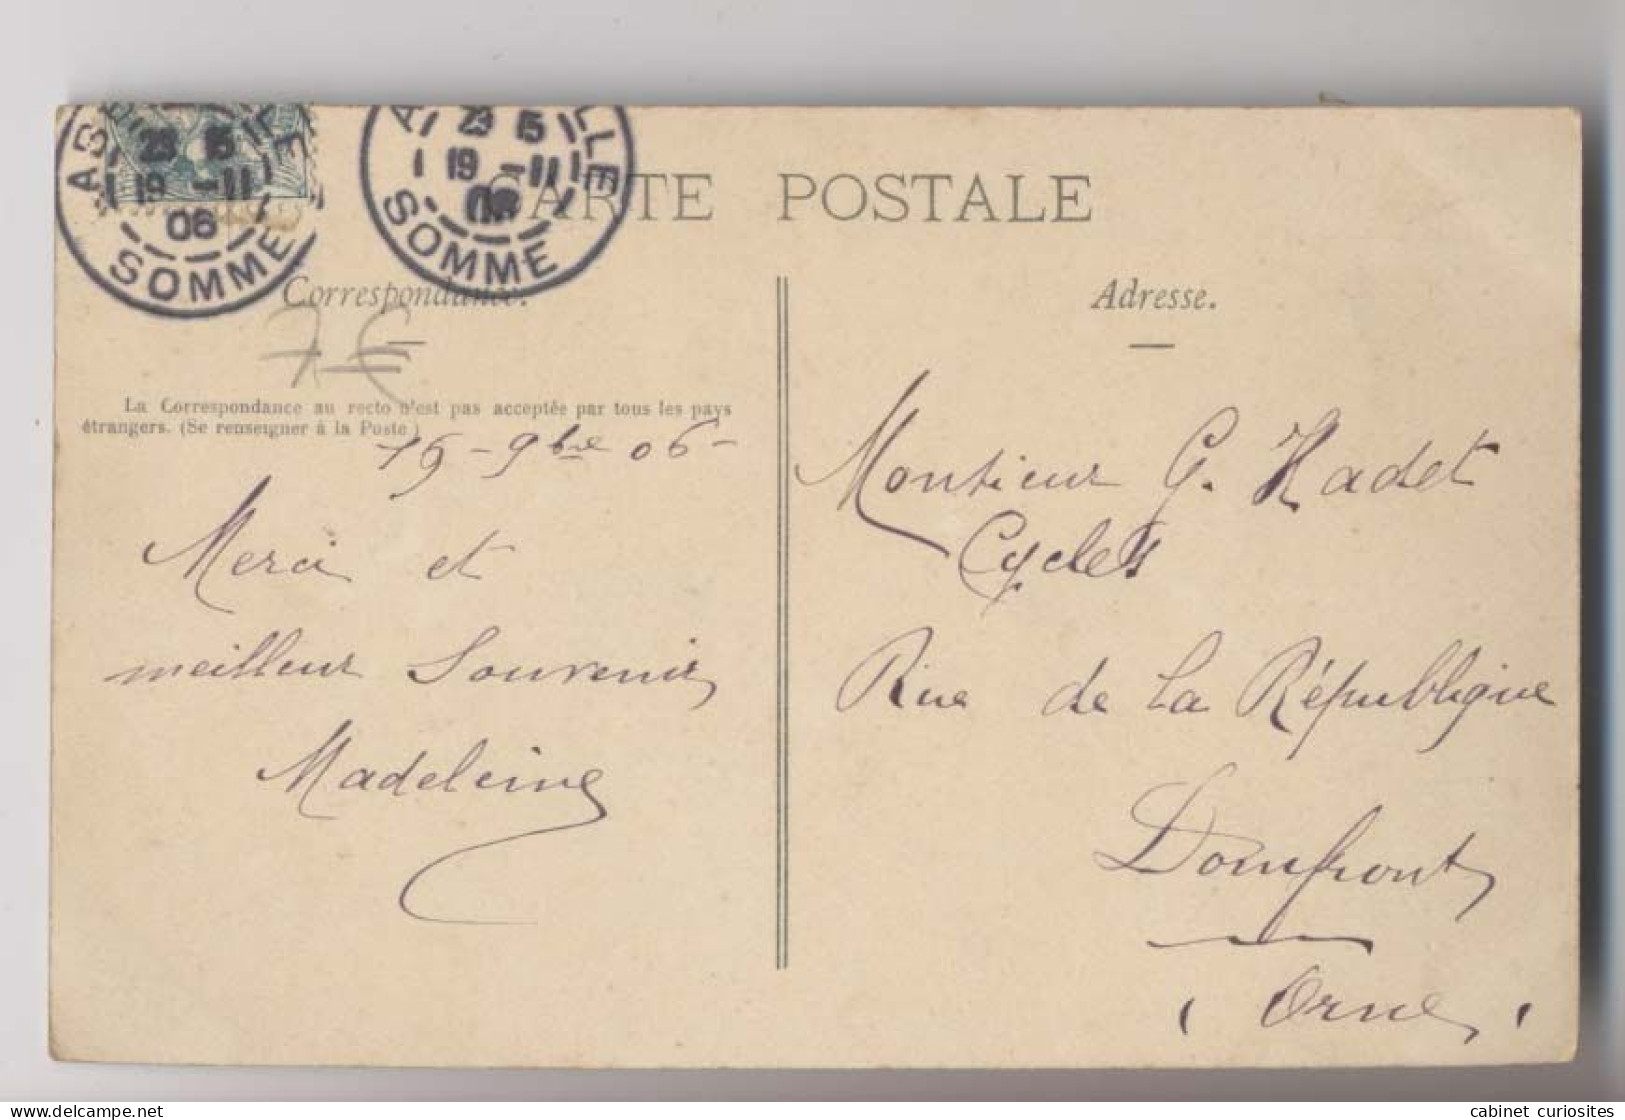 ABBEVILLE
23 15
19 -11
06
SOMME
23 15
19 -11
06
SOMME
CARTE POSTALE
Correspondance.
Adresse.
7 €
La Correspondance au recto n'est pas acceptée par tous les pays
étrangers. (Se renseigner à la Poste)
19 - 9bre 06 -
Merci et
meilleur Souvenir
Madeleine
Monsieur G. Hadet
Cycles
Rue de la République
Domfront
(Orne)
cabinet_curiosites